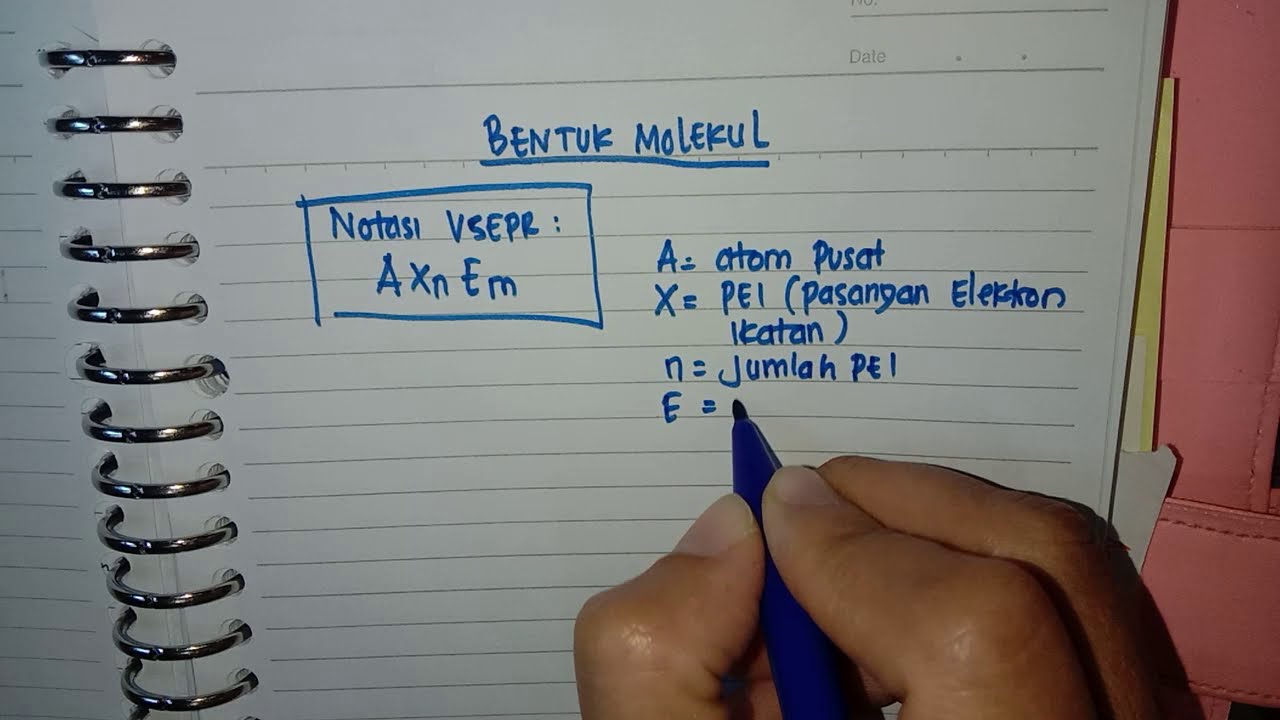 No.
Date
BENTUK MOLEKUL
Notasi VSEPR :
AXnEm
A = atom Pusat
X = PEI (Pasangan Elektron
Ikatan)
n = Jumlah PEI
E =